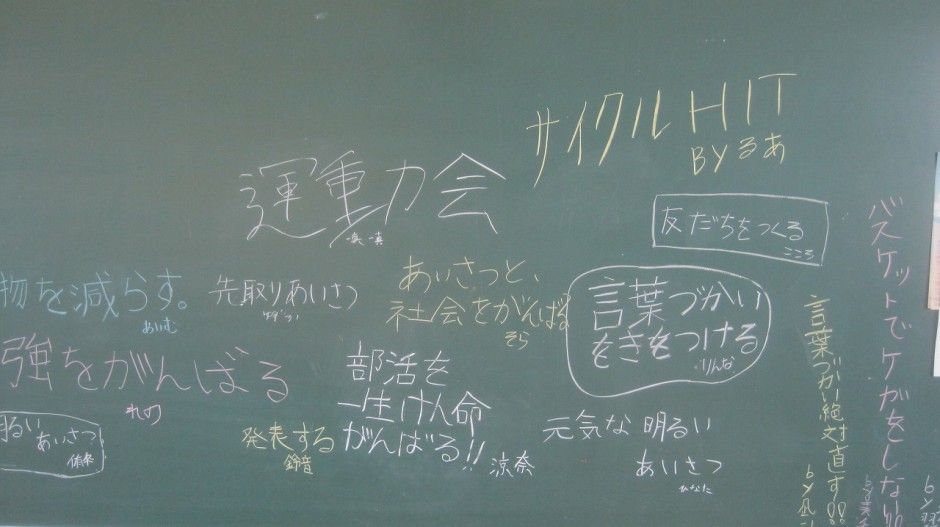 サイクルHIT
BYるあ
運動会
友だちをつくる
こころ
物を減らす。
あいむ
先取りあいさつ
あいさつと、
社会をがんばる
そら
言葉づかい
をきをつける
りんな
強をがんばる
れの
部活を
一生けん命
がんばる!!
涼奈
発表する
鈴音
元気な 明るい
あいさつ
ひなた
明るい
あいさつ
言葉づかい絶対直す!!
by
バスケットでケガをしない!!
by
by